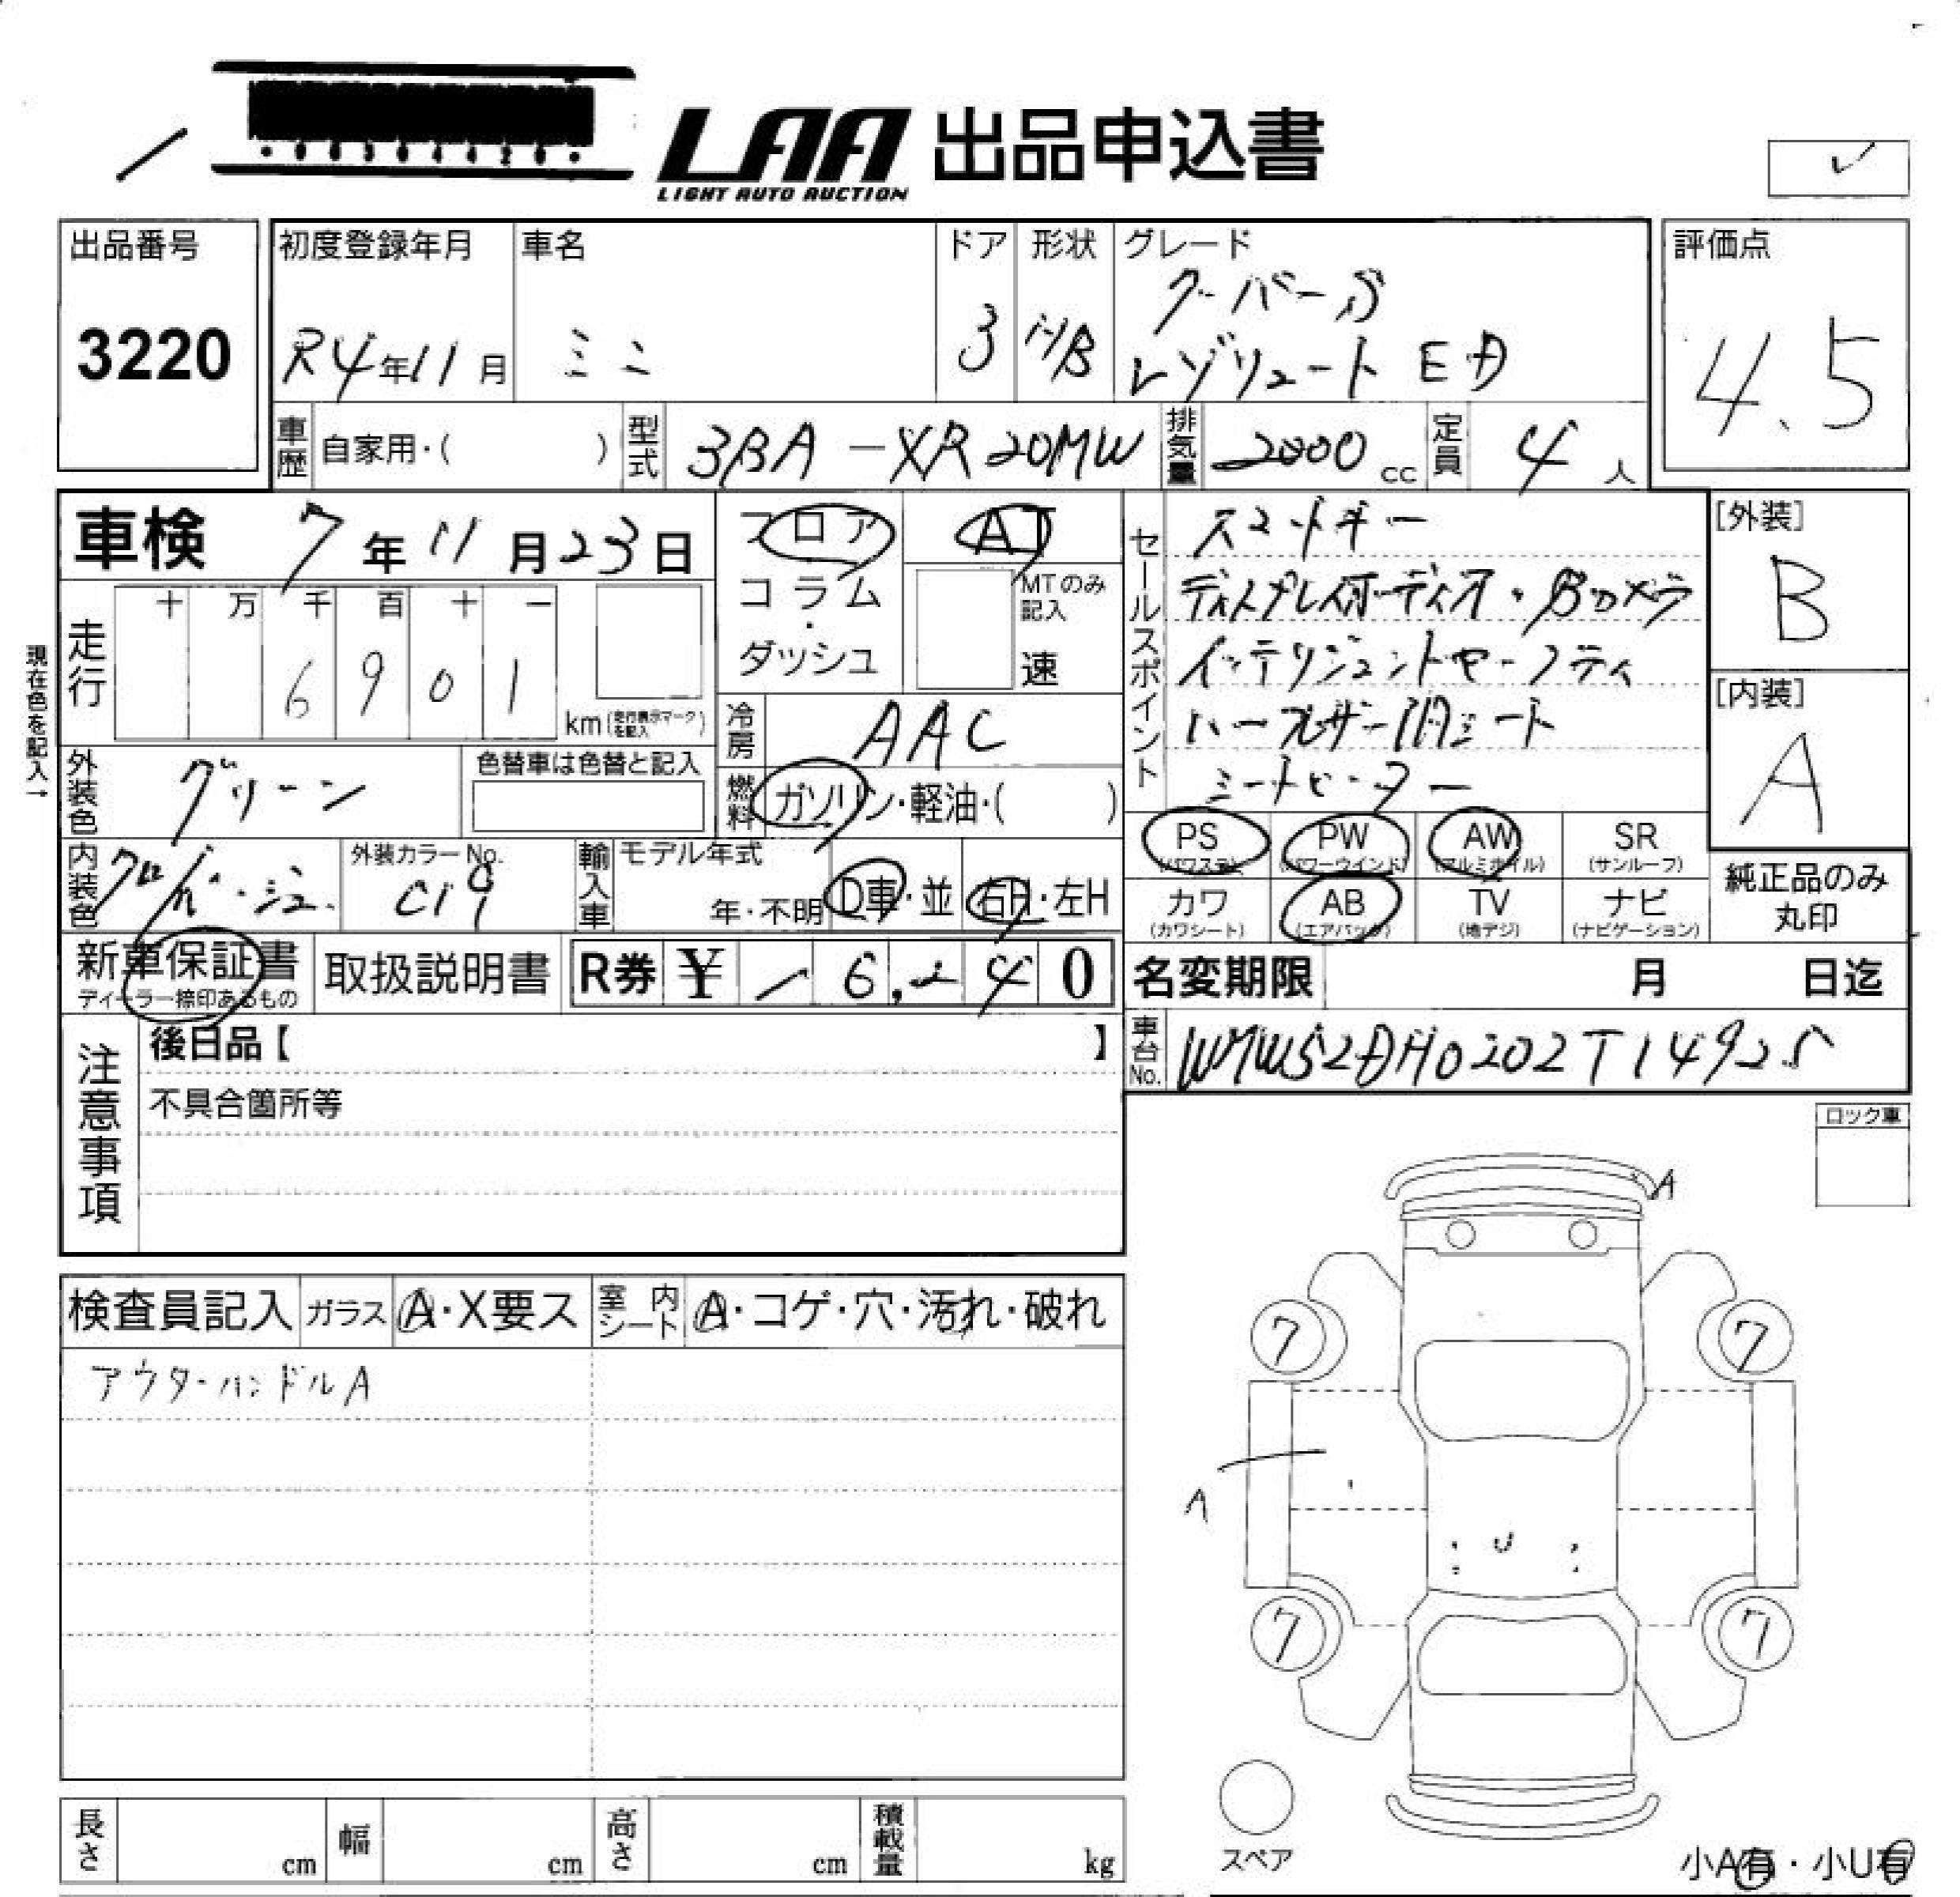 LAA 出品申込書
LIGHT AUTO AUCTION
出品番号
3220
初度登録年月
R4年11月
車名
ミニ
ドア
3
形状
H/B
グレード
クーパーS
レゾリュートED
評価点
4.5
車歴 自家用・( )
型式 3BA-XR20MW
排気量 2000cc
定員 4人
車検 7年11月23日
フロア
コラム
・
ダッシュ
AT
MTのみ
記入
速
セールスポイント
スマートキー
ディスプレイオーディオ・Bカメラ
インテリジェントセーフティ
ハーフレザー調シート
シートヒーター
[外装]
B
[内装]
A
現在色を記入→
走行
十 万 千 百 十 一
6 9 0 1
km(走行表示マークを記入)
冷房 AAC
外装色 グリーン
色替車は色替と記入
燃料 ガソリン・軽油・( )
PS (パワステ)
PW (パワーウインド)
AW (アルミホイル)
SR (サンルーフ)
内装色 クロ/ベージュ
外装カラーNo.
C19
輸入車 モデル年式
年・不明
D車・並
右H・左H
カワ (カワシート)
AB (エアバック)
TV (地デジ)
ナビ (ナビゲーション)
純正品のみ
丸印
新車保証書
ディーラー捺印あるもの
取扱説明書
R券 ¥ 6, 4 0
名変期限 月 日迄
車台No. WMW52DH0202T14925
注意事項
後日品【 】
不具合箇所等
ロック車
検査員記入
ガラス A・X要ス
室内シート A・コゲ・穴・汚れ・破れ
アウターハンドルA
A
7
7
A
7
7
スペア
長さ cm
幅 cm
高さ cm
積載量 kg
小A有・小U有